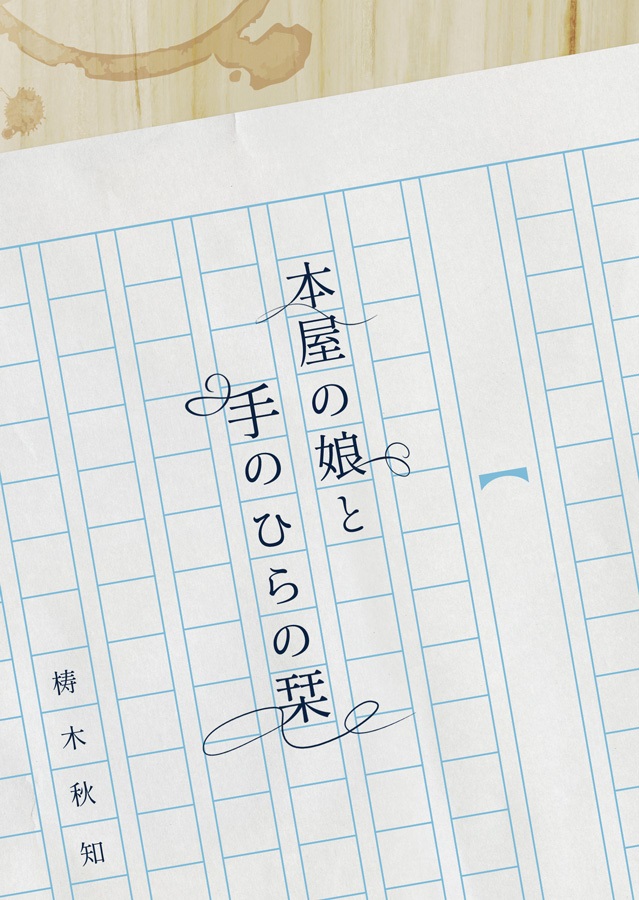 本屋の娘と
手のひらの栞
梼木秋知